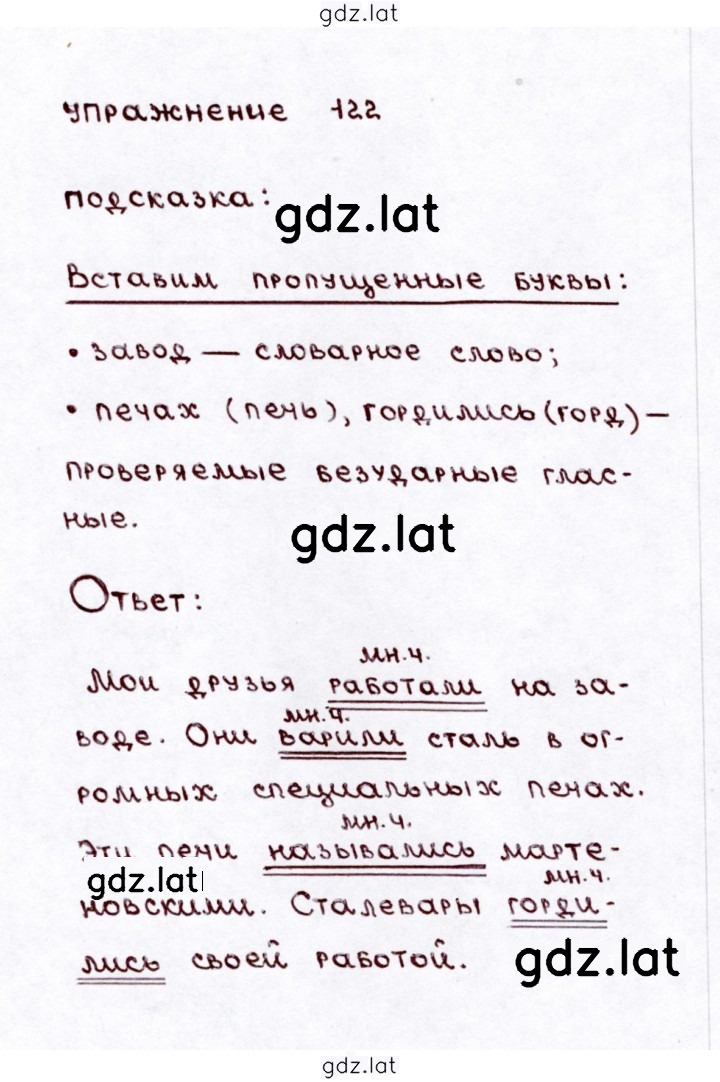 gdz.lat
упражнение 122
подсказка:
gdz.lat
Вставим пропущенные буквы:
• завод — словарное слово;
• печах (печь), гордились (горд) —
проверяемые безударные глас-
ные.
gdz.lat
Ответ:
мн.ч.
Мои друзья работали на за-
мн.ч.
воде. Они варили сталь в ог-
ромных специальных печах.
мн.ч.
Эти печи назывались марте-
gdz.lat
мн.ч.
новскими. Сталевары горди-
лись своей работой.
gdz.lat
gdz.lat